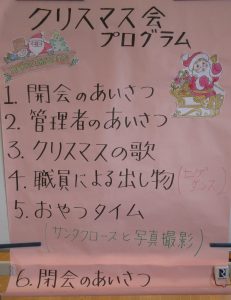 クリスマス会
プログラム
1. 開会のあいさつ
2. 管理者のあいさつ
3. クリスマスの歌
4. 職員による出し物
5. おやつタイム
(サンタクロースと写真撮影)
6. 閉会のあいさつ